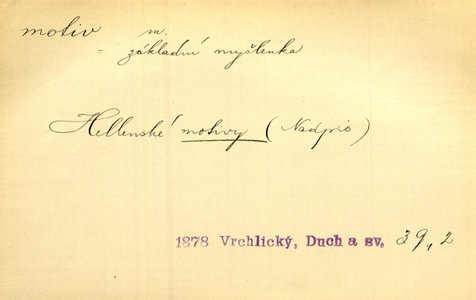 motiv m.
= základní myšlenka
Hellenské motivy (Nadpis)
1878 Vrchlický, Duch a sv. 39, 2